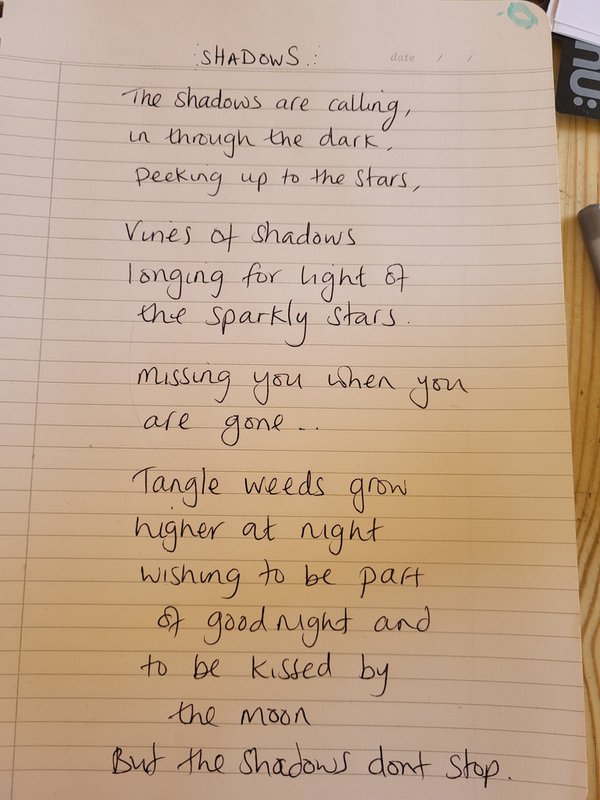 :SHADOWS.:
date / /
The shadows are calling,
in through the dark,
peeking up to the stars,
Vines of shadows
longing for light of
the sparkly stars.
missing you when you
are gone...
Tangle weeds grow
higher at night
wishing to be part
of goodnight and
to be kissed by
the moon
But the shadows dont stop.